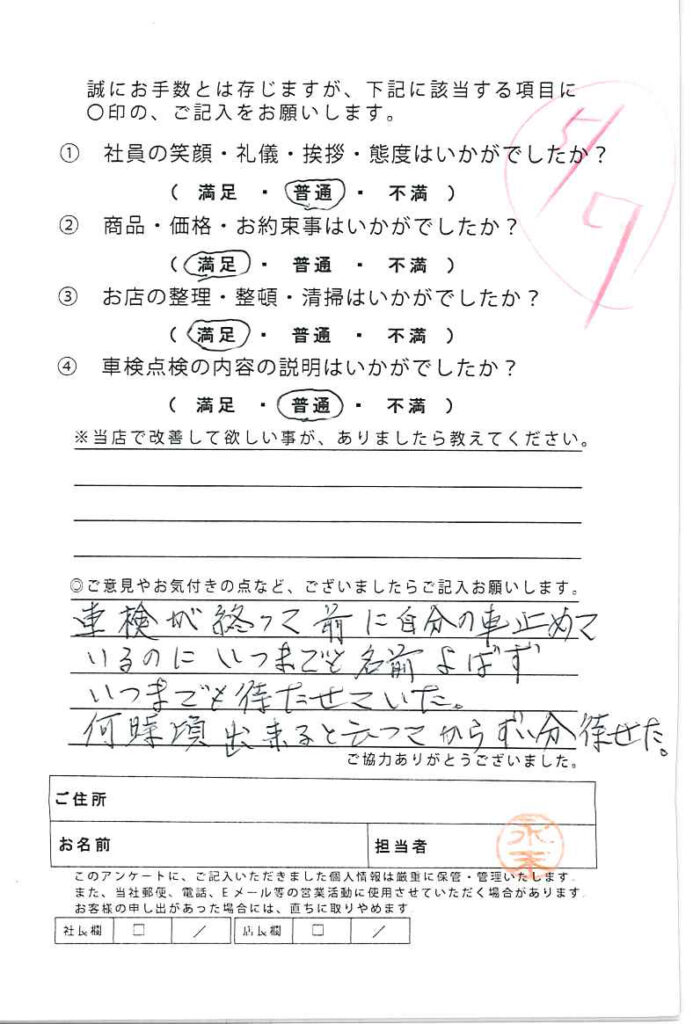 誠にお手数とは存じますが、下記に該当する項目に
〇印の、ご記入をお願いします。
5/7
① 社員の笑顔・礼儀・挨拶・態度はいかがでしたか？
( 満足 ・ 普通 ・ 不満 )
② 商品・価格・お約束事はいかがでしたか？
( 満足 ・ 普通 ・ 不満 )
③ お店の整理・整頓・清掃はいかがでしたか？
( 満足 ・ 普通 ・ 不満 )
④ 車検点検の内容の説明はいかがでしたか？
( 満足 ・ 普通 ・ 不満 )
※当店で改善して欲しい事が、ありましたら教えてください。
◎ご意見やお気付きの点など、ございましたらご記入お願いします。
車検が終って前に自分の車止めて
いるのにいつまでも名前よばず
いつまでも待たせていた。
何時頃出来ると云ってからずい分待せた。
ご協力ありがとうございました。
ご住所
お名前 担当者
このアンケートに、ご記入いただきました個人情報は厳重に保管・管理いたします.
また、当社郵便、電話、Eメール等の営業活動に使用させていただく場合があります.
お客様の申し出があった場合には、直ちに取りやめます.
社長欄 □ / 店長欄 □ /